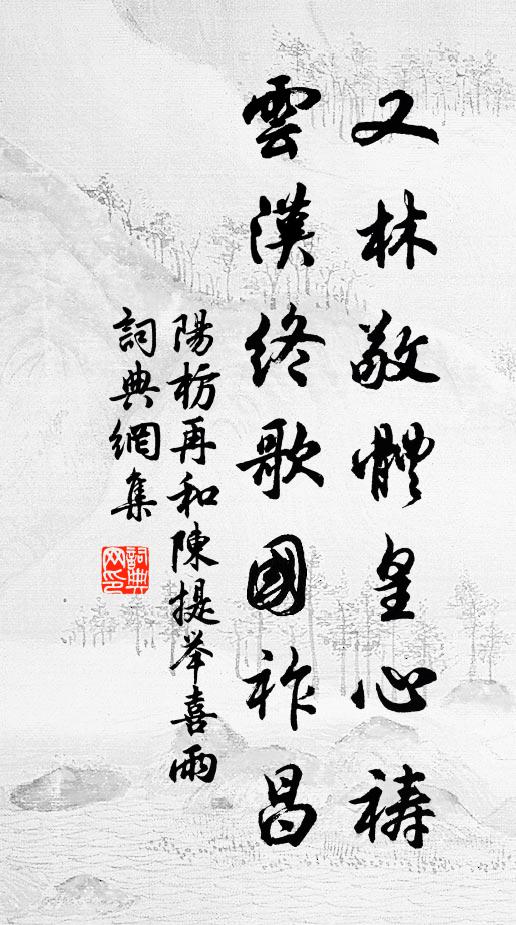 又林敬體皇心禱
雲漢終歌國祚昌
陽枋再和陳提举喜雨
詞典網集
詞典網印